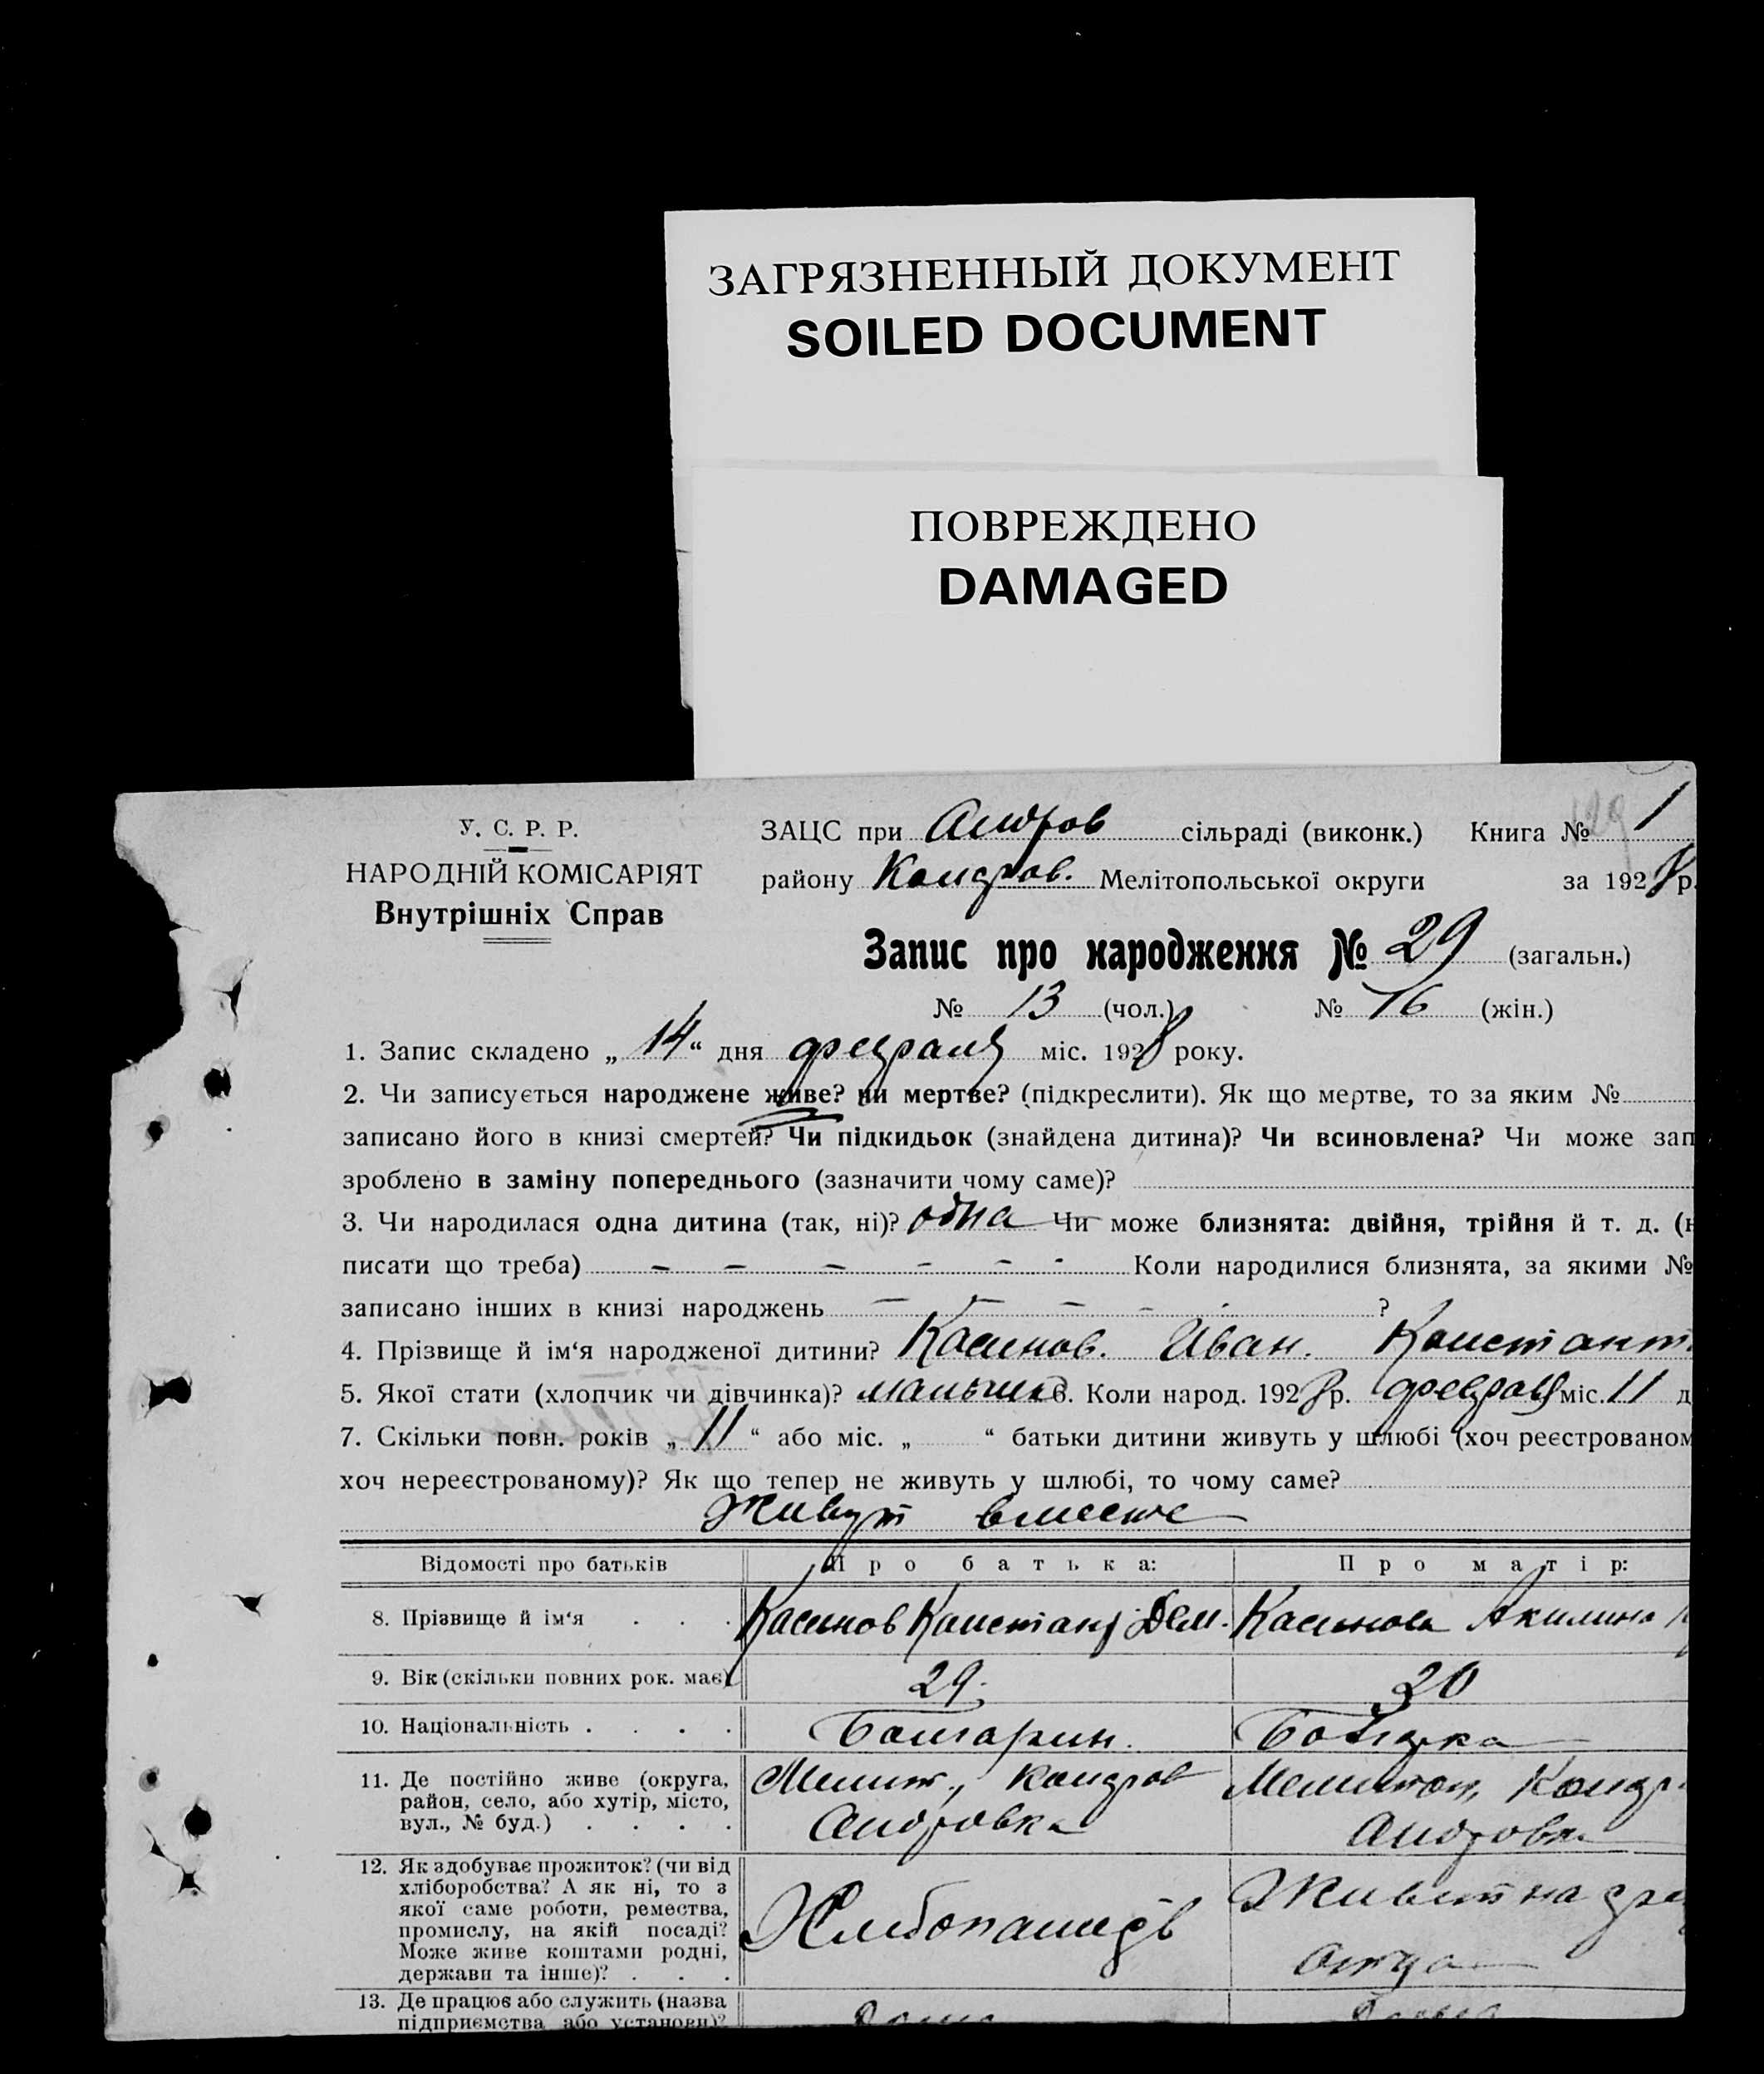 ЗАГРЯЗНЕННЫЙ ДОКУМЕНТ
SOILED DOCUMENT
ПОВРЕЖДЕНО
DAMAGED
У. С. Р. Р.
НАРОДНІЙ КОМІСАРІЯТ
Внутрішніх Справ
ЗАЦС при Андров сільраді (виконк.) Книга № 1
району Кондров. Мелітопольської округи за 1928 р.
Запис про народження № 29 (загальн.)
№ 13 (чол.) № 16 (жін.)
1. Запис складено „14“ дня февраля міс. 1928 року.
2. Чи записується народжене живе? чи мертве? (підкреслити). Як що мертве, то за яким №
записано його в книзі смертей? Чи підкидьок (знайдена дитина)? Чи всиновлена? Чи може зап
зроблено в заміну попереднього (зазначити чому саме)?
3. Чи народилася одна дитина (так, ні)? одна Чи може близнята: двійня, трійня й т. д. (н
писати що треба) - - - - - - Коли народилися близнята, за якими №
записано інших в книзі народжень - - - - - ?
4. Прізвище й ім‘я народженої дитини? Касинов. Иван. Константи
5. Якої стати (хлопчик чи дівчинка)? мальчик 6. Коли народ. 1928 р. февраля міс. 11 д
7. Скільки повн. років „11“ або міс. „ “ батьки дитини живуть у шлюбі (хоч реєстрованом
хоч нереєстрованому)? Як що тепер не живуть у шлюбі, то чому саме?
Живут вместе
Відомості про батьків Про батька: Про матір:
8. Прізвище й ім‘я . . . Касинов Констант Дем. Касинова Акилина
9. Вік (скільки повних рок. має) 29. 30
10. Національність . . . . Болгарин. Болгарка
11. Де постійно живе (округа, Мелит., Кондров Мелитоп, Кондр
район, село, або хутір, місто, Андровка Андровк
вул., № буд.) . . . .
12. Як здобуває прожиток? (чи від
хліборобства? А як ні, то з Живет на сре
якої саме роботи, ремества, Хлибопашец
промислу, на якій посаді?
Може живе коштами родні, отца
держави та інше)? . . .
13. Де працює або служить (назва
підприємства або установи)? Дома Дома